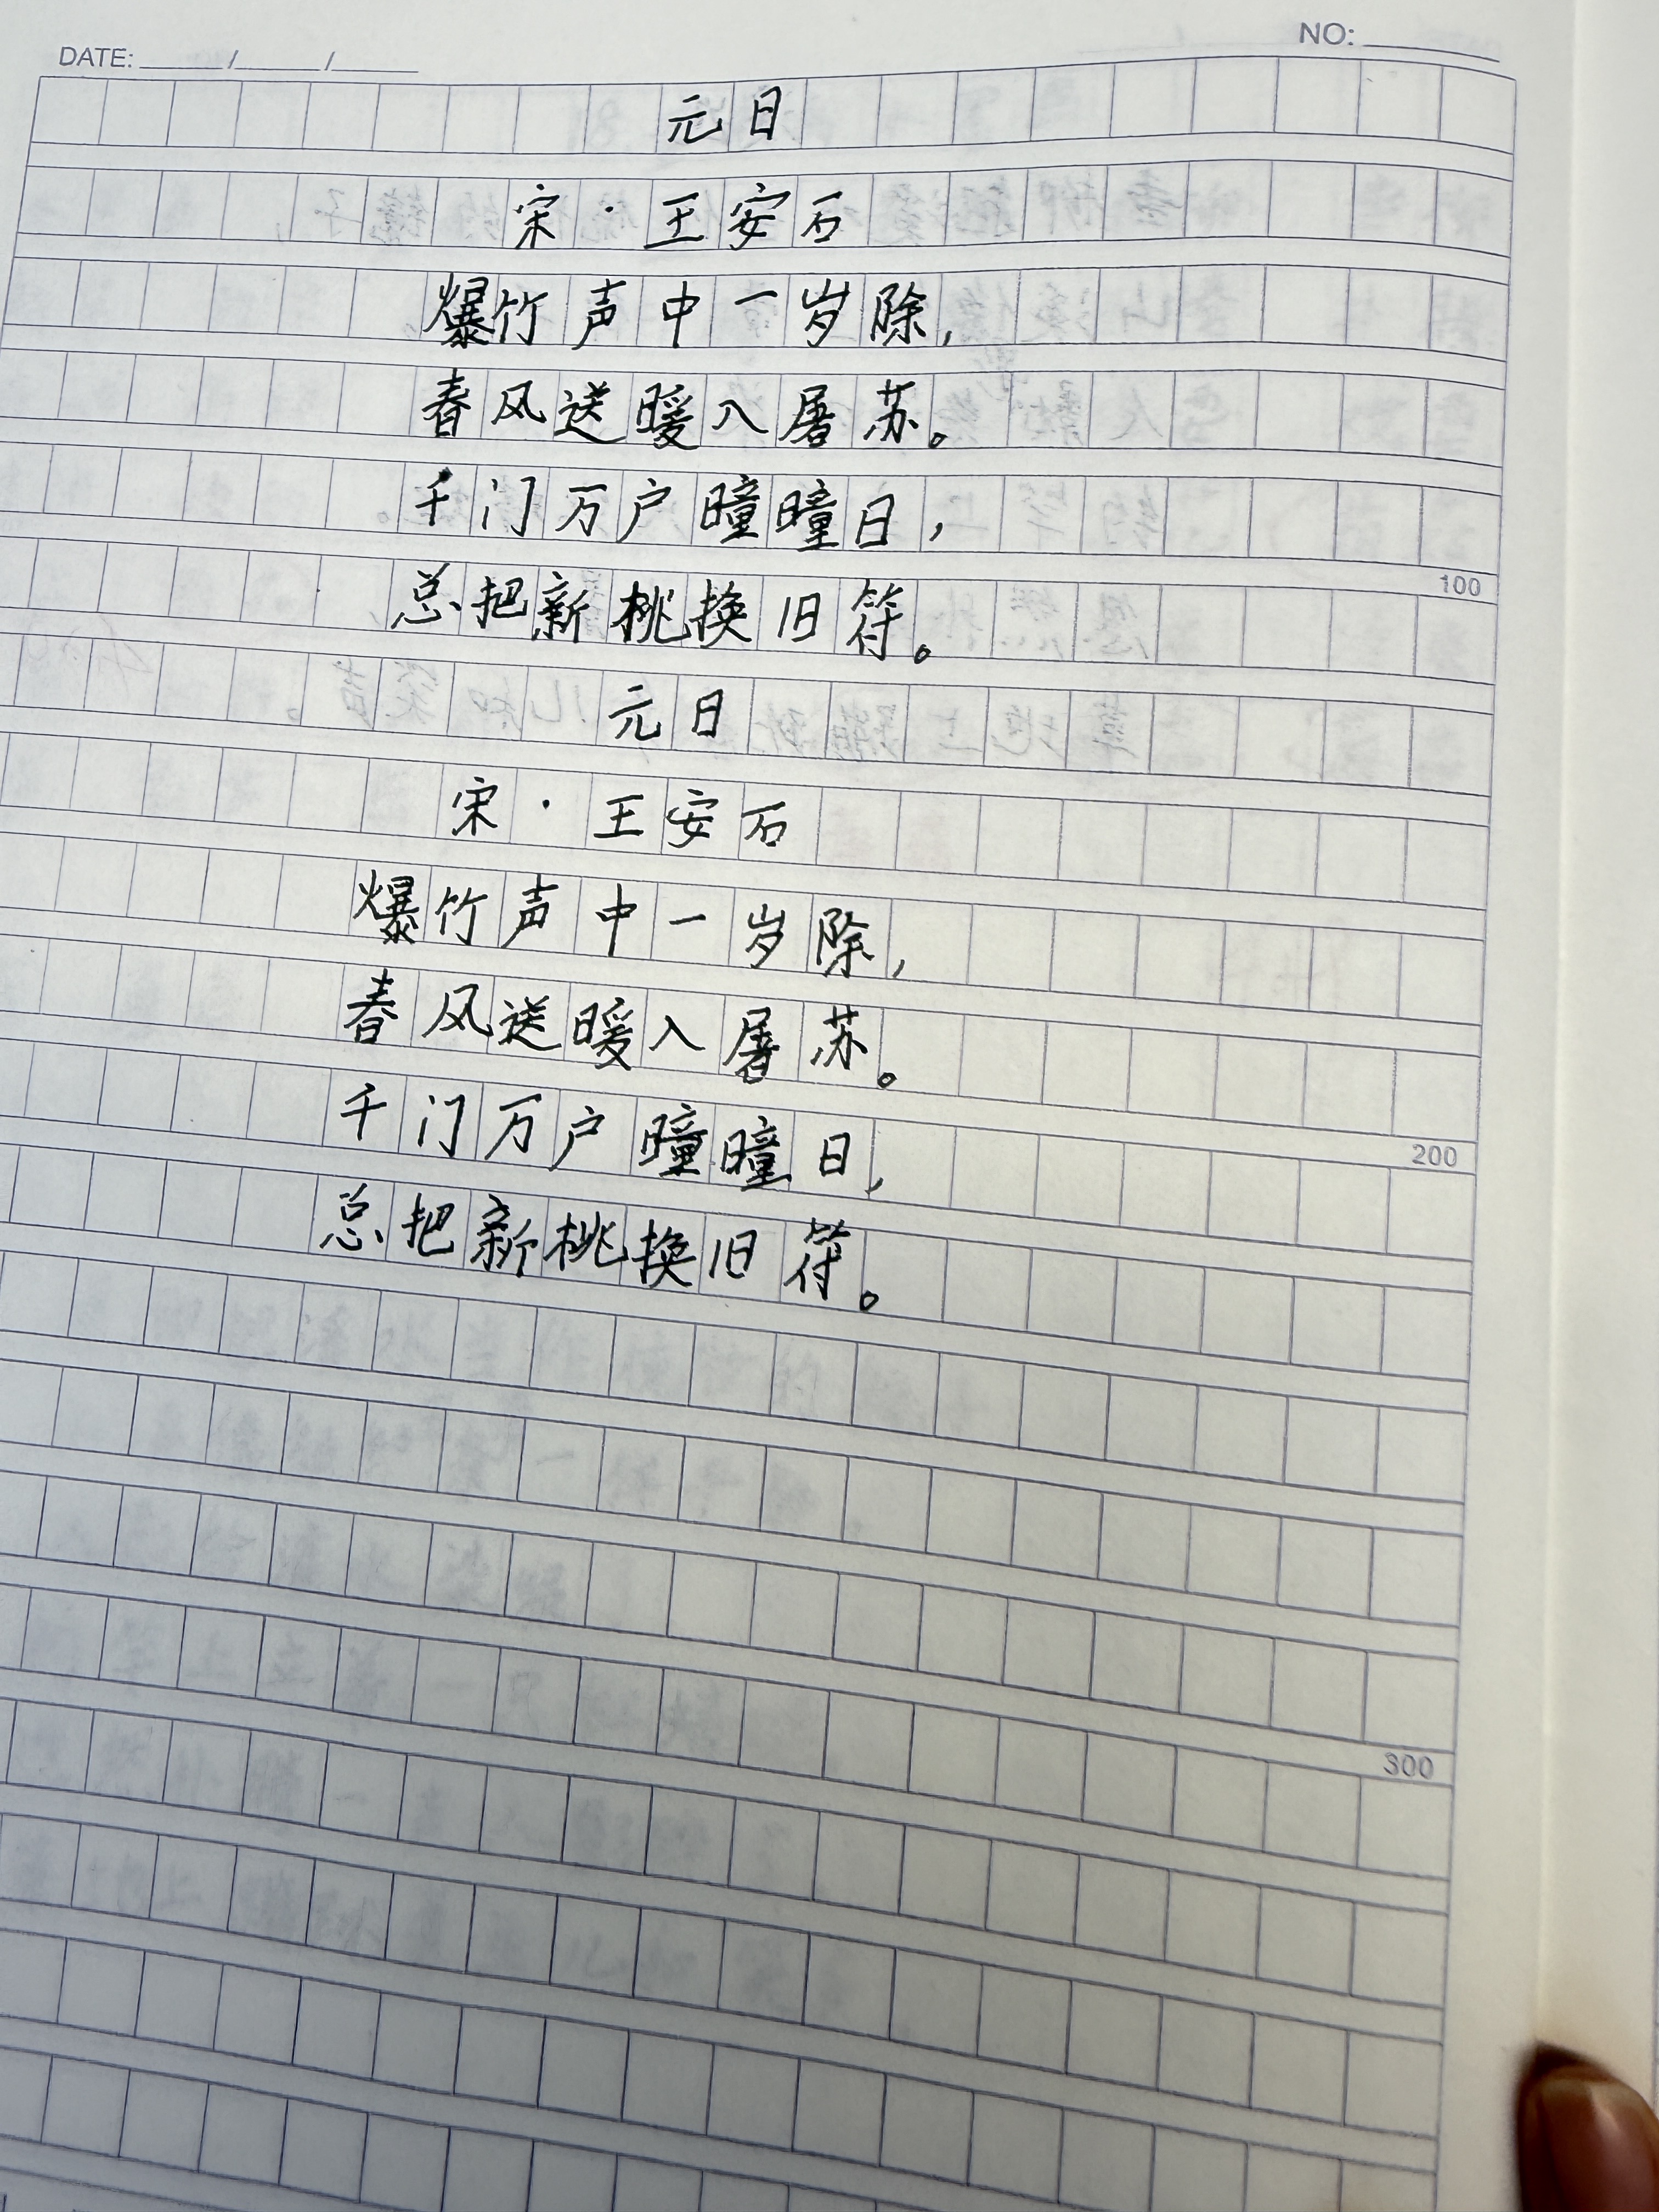 DATE: / /
NO:
元日
宋·王安石
爆竹声中一岁除，
春风送暖入屠苏。
千门万户曈曈日，
总把新桃换旧符。
100
元日
宋·王安石
爆竹声中一岁除，
春风送暖入屠苏。
千门万户曈曈日，
200
总把新桃换旧符。
300